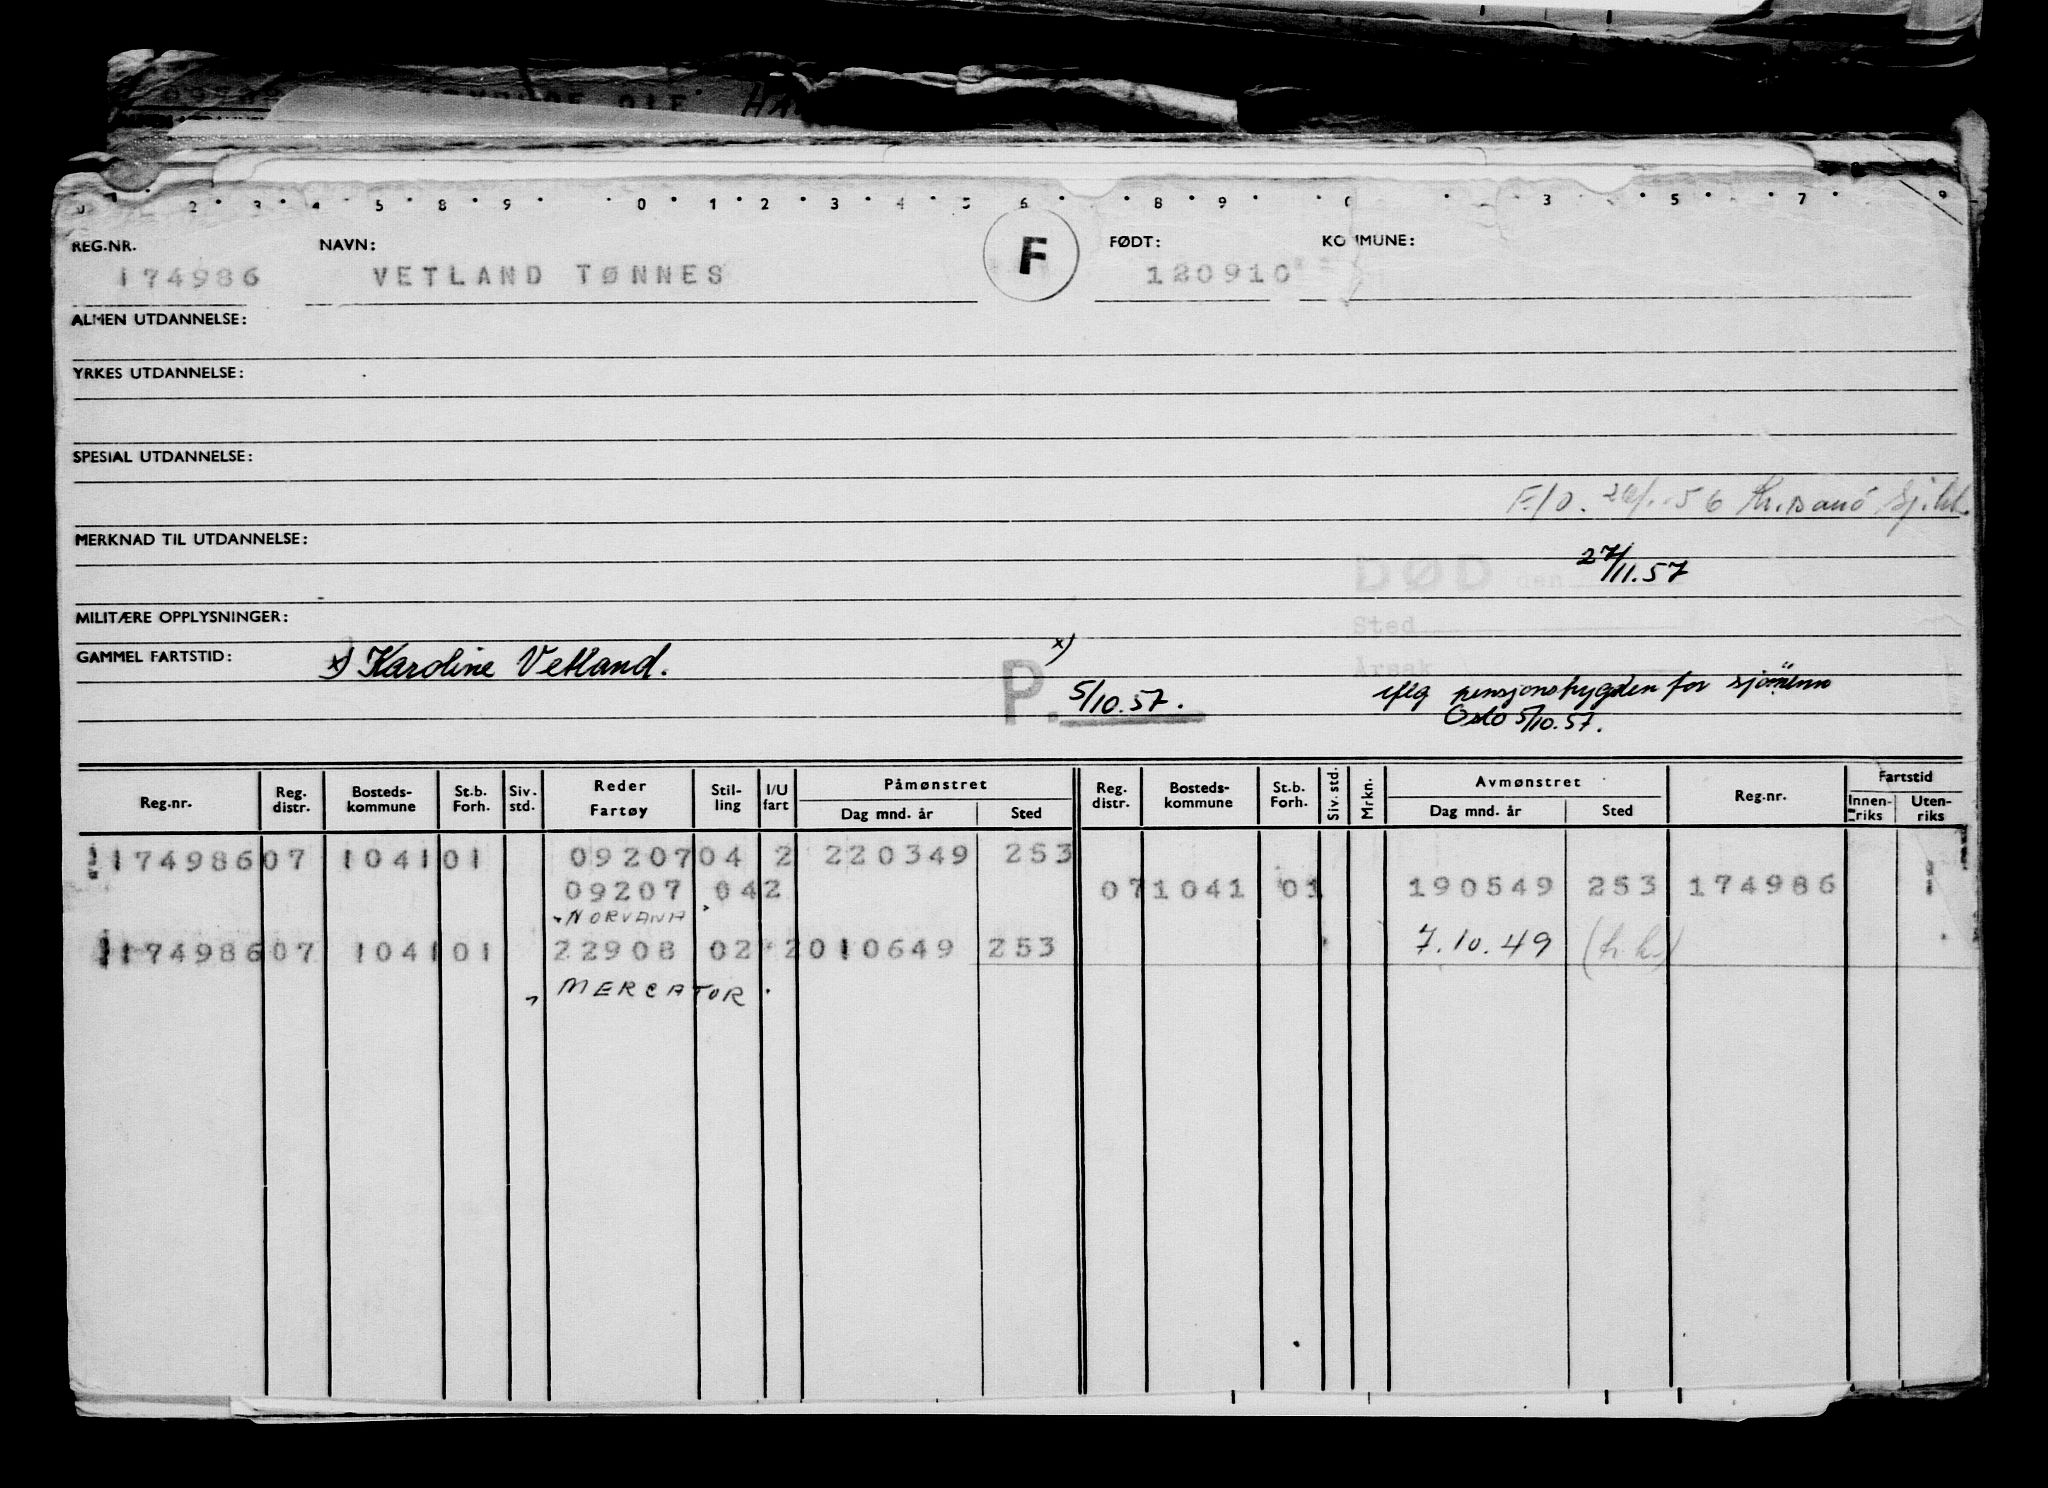 REG.NR. NAVN: F FØDT: KOMMUNE:
174986 VETLAND TØNNES 120910
ALMEN UTDANNELSE:
YRKES UTDANNELSE:
SPESIAL UTDANNELSE:
F/O. 56 Kr.sand sj.kt.
MERKNAD TIL UTDANNELSE:
DØD den 27/11.57
MILITÆRE OPPLYSNINGER:
Sted
GAMMEL FARTSTID: x) Karoline Vetland. x)
Årsak
P. 5/10.57. iflg pensjonstrygden for sjömenn
Oslo 5/10.57.
Reg.nr. Reg. distr. Bosteds-kommune St.b. Forh. Siv. std. Reder Fartøy Stil-ling I/U fart Påmønstret Dag mnd. år Sted Reg. distr. Bosteds-kommune St.b. Forh. Siv. std. Mrkn. Avmønstret Dag mnd. år Sted Reg.nr. Fartstid Innen-riks Uten-riks
174986 07 1041 01 09207 04 2 220349 253
09207 04 2 07 1041 01 190549 253 174986
NORVANA
174986 07 1041 01 22908 02 2 010649 253 7.10.49
MERCATOR